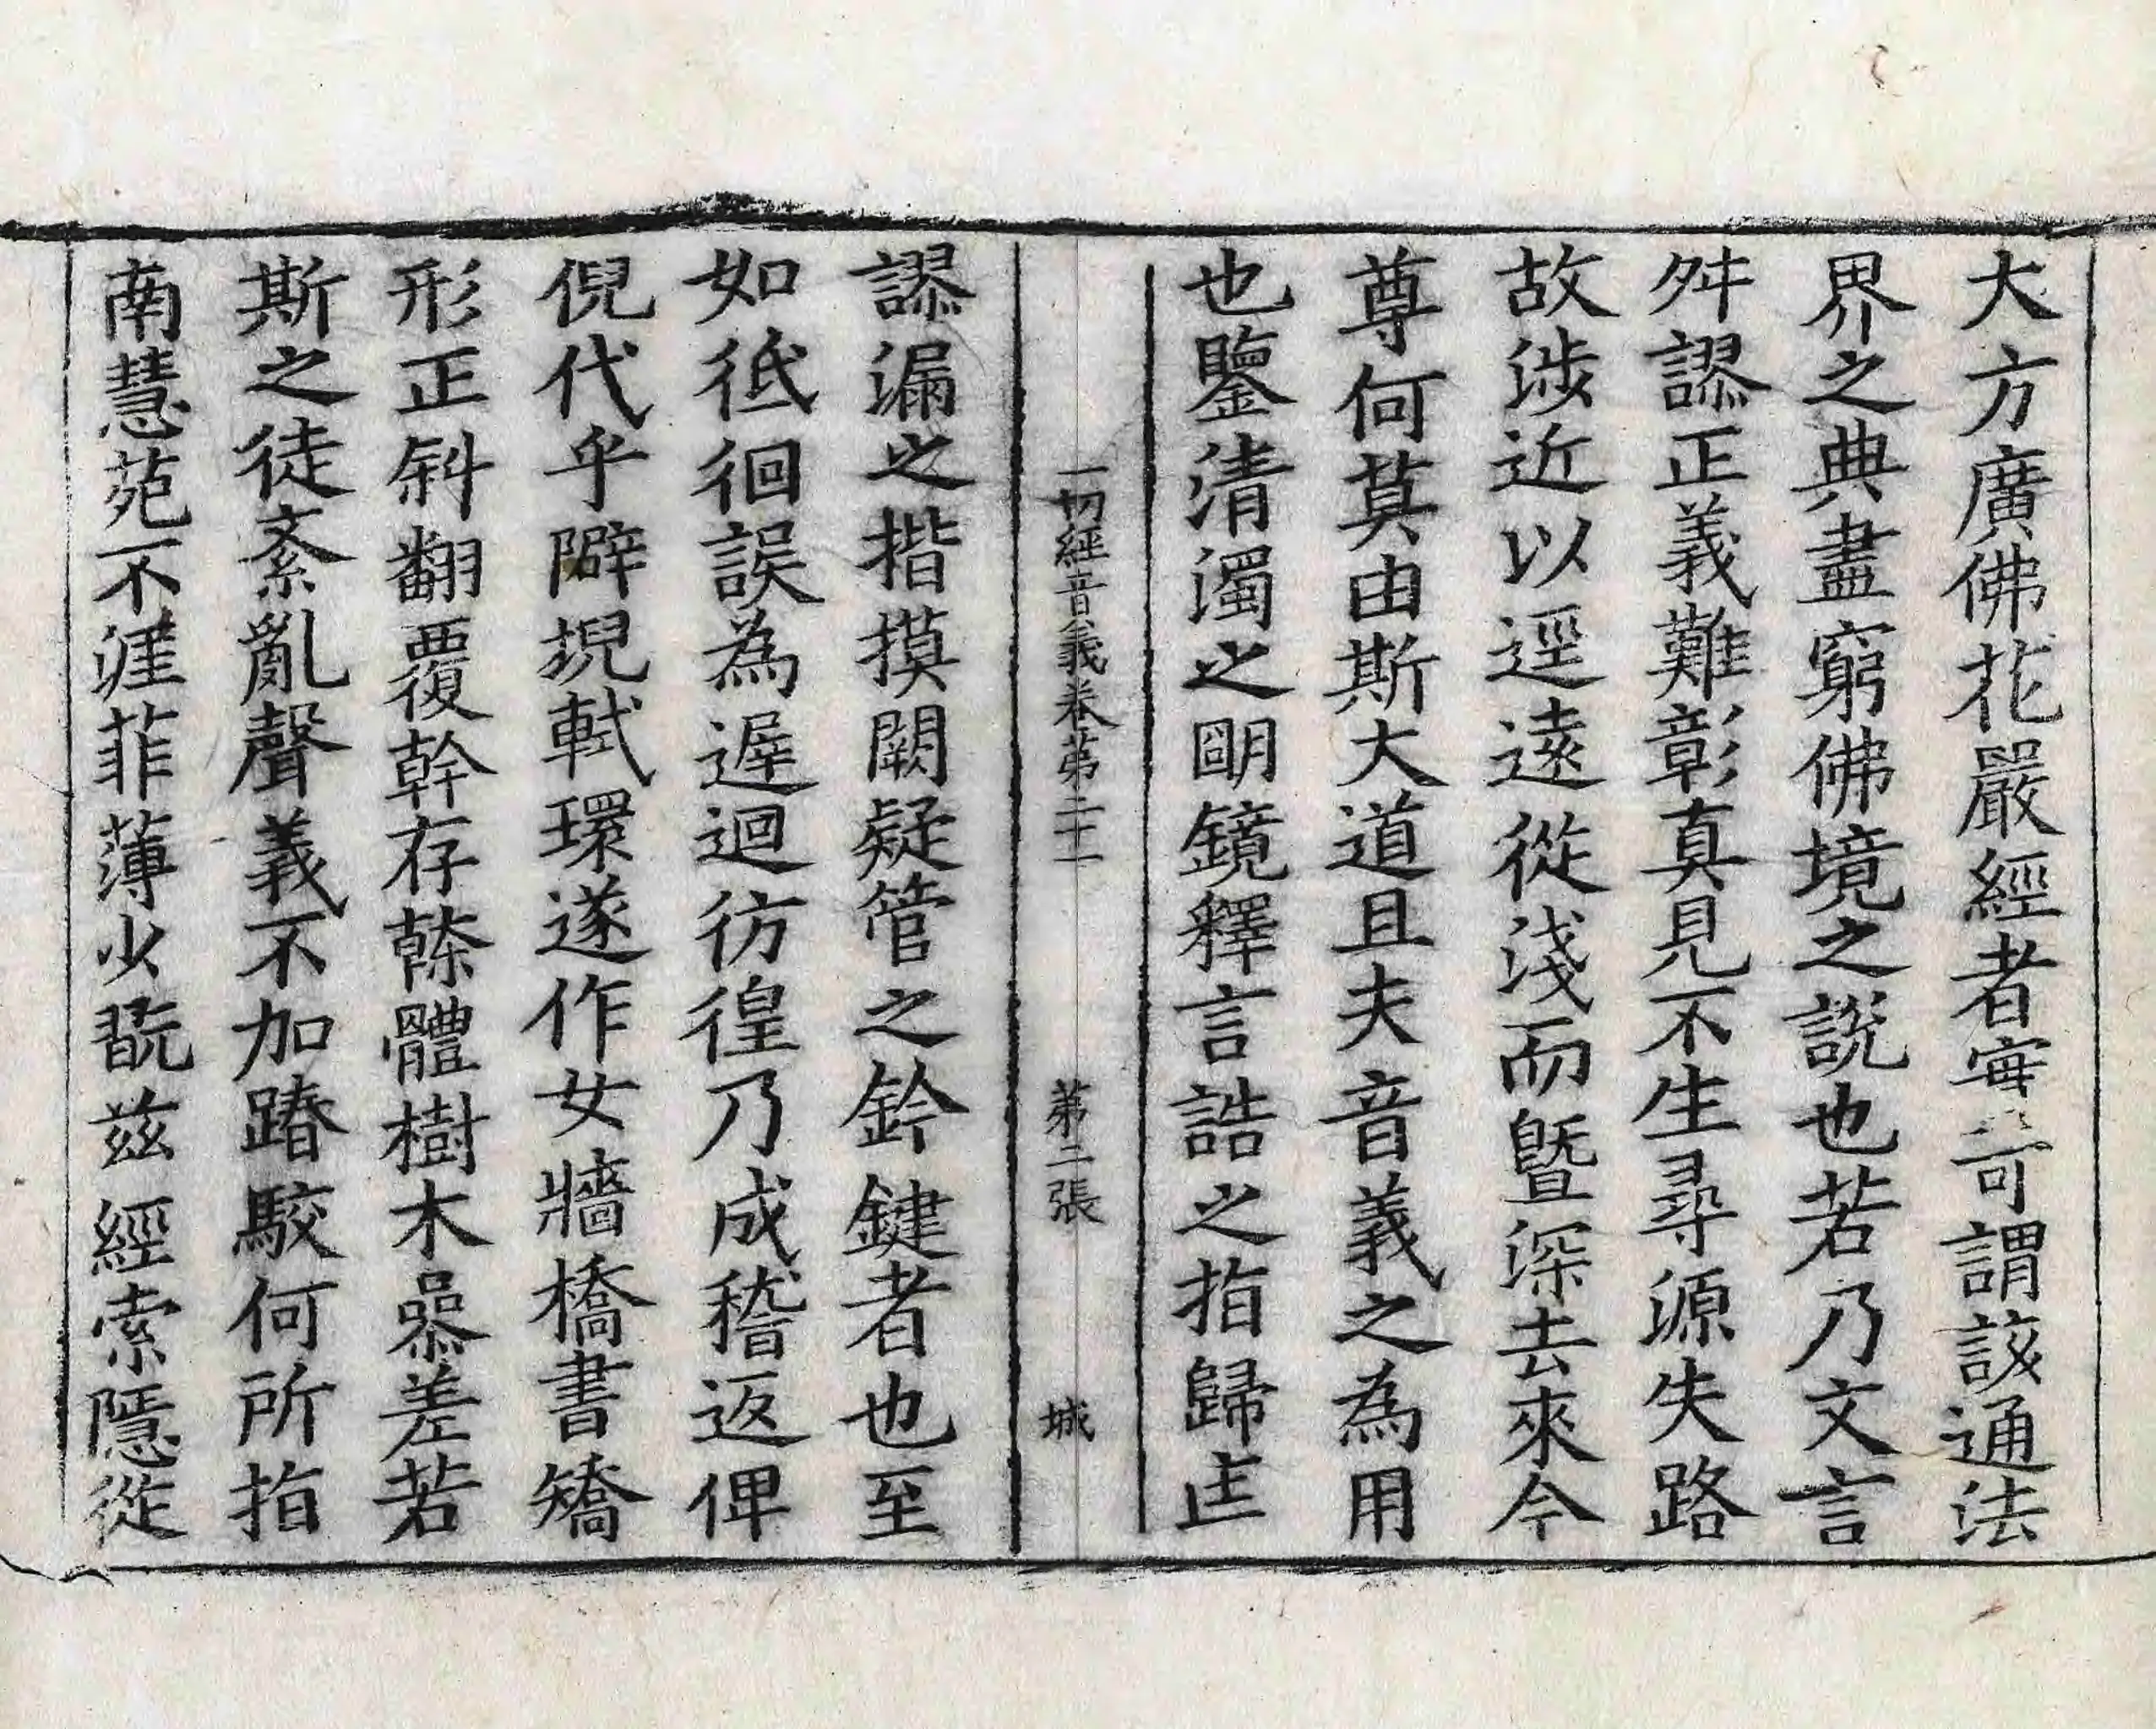 大方廣佛花嚴經者寔可謂該通法
界之典盡窮佛境之說也若乃文言
舛謬正義難彰真見不生尋源失路
故涉近以逕遠從淺而曁深去來今
尊何莫由斯大道且夫音義之為用
也鑒清濁之朙鏡釋言誥之指歸㐀
一切經音義卷苐二十一 苐二張 城
謬漏之揩摸闕疑管之鈐鍵者也至
如彽徊誤為遟迴彷徨乃成稽返俾
倪代乎隦堄軾環遂作女牆橋書矯
形正斜翻覆幹存榦體樹木叅差若
斯之徒紊亂聲義不加踳駮何所指
南慧苑不涯菲薄少翫兹經索隱從